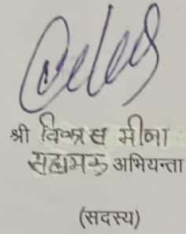 श्री विकास मीना
सहायक अभियन्ता
(सदस्य)